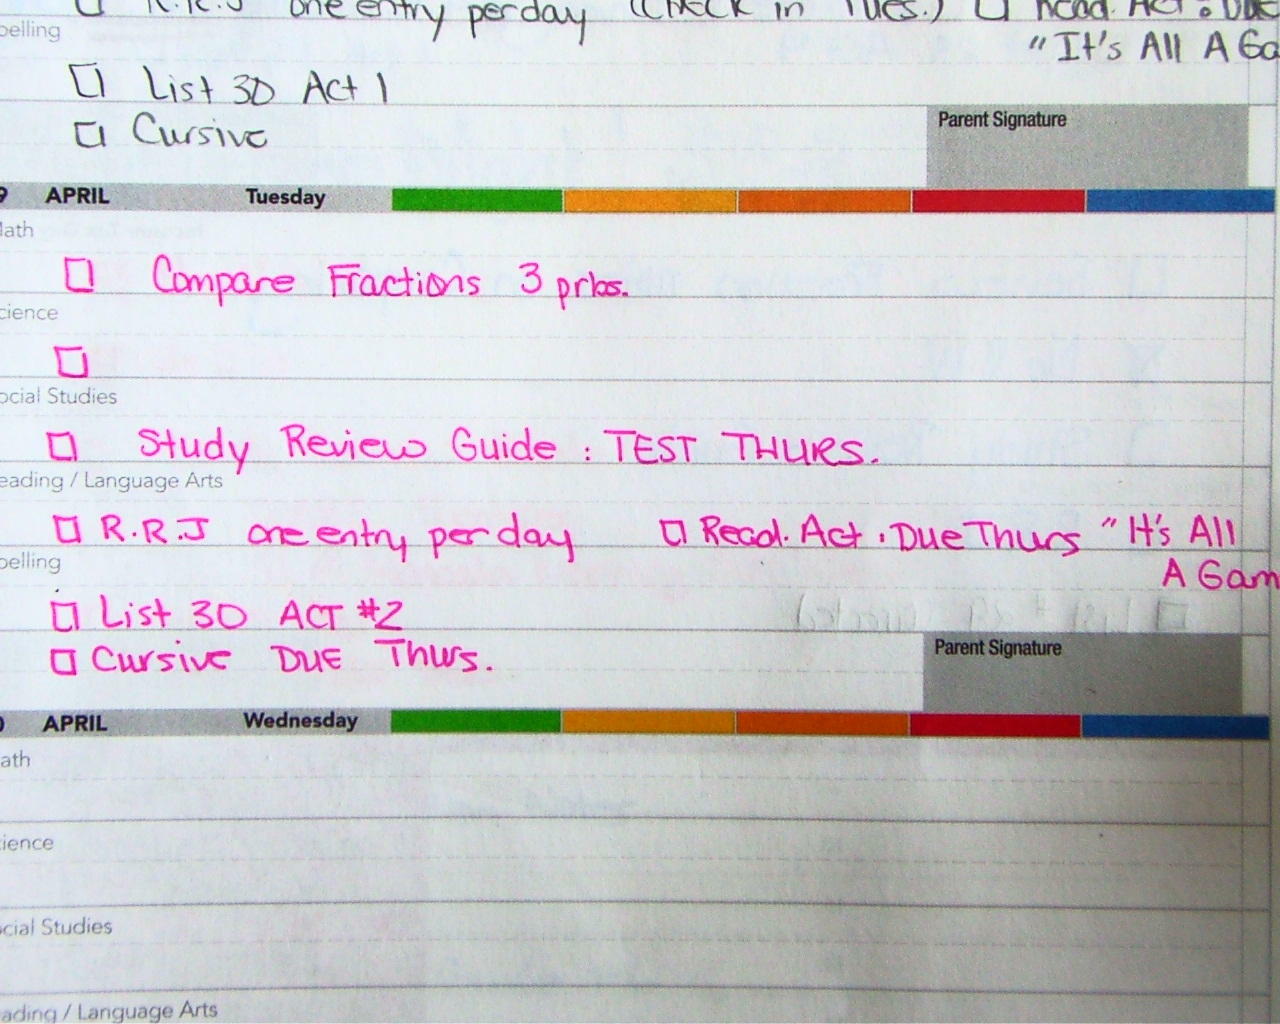 R.R.J one entry per day (Check in Tues.) ☐ Read. Act : Due
pelling
"It's All A Ga
☐ List 30 Act 1
☐ Cursive
Parent Signature
9 APRIL Tuesday
Math
☐ Compare Fractions 3 prbs.
cience
☐
ocial Studies
☐ Study Review Guide : TEST THURS.
eading / Language Arts
☐ R.R.J one entry per day ☐ Read. Act. Due Thurs "It's All
pelling
A Gam
☐ List 30 ACT #2
☐ Cursive DUE Thurs.
Parent Signature
0 APRIL Wednesday
ath
ience
ocial Studies
ading / Language Arts